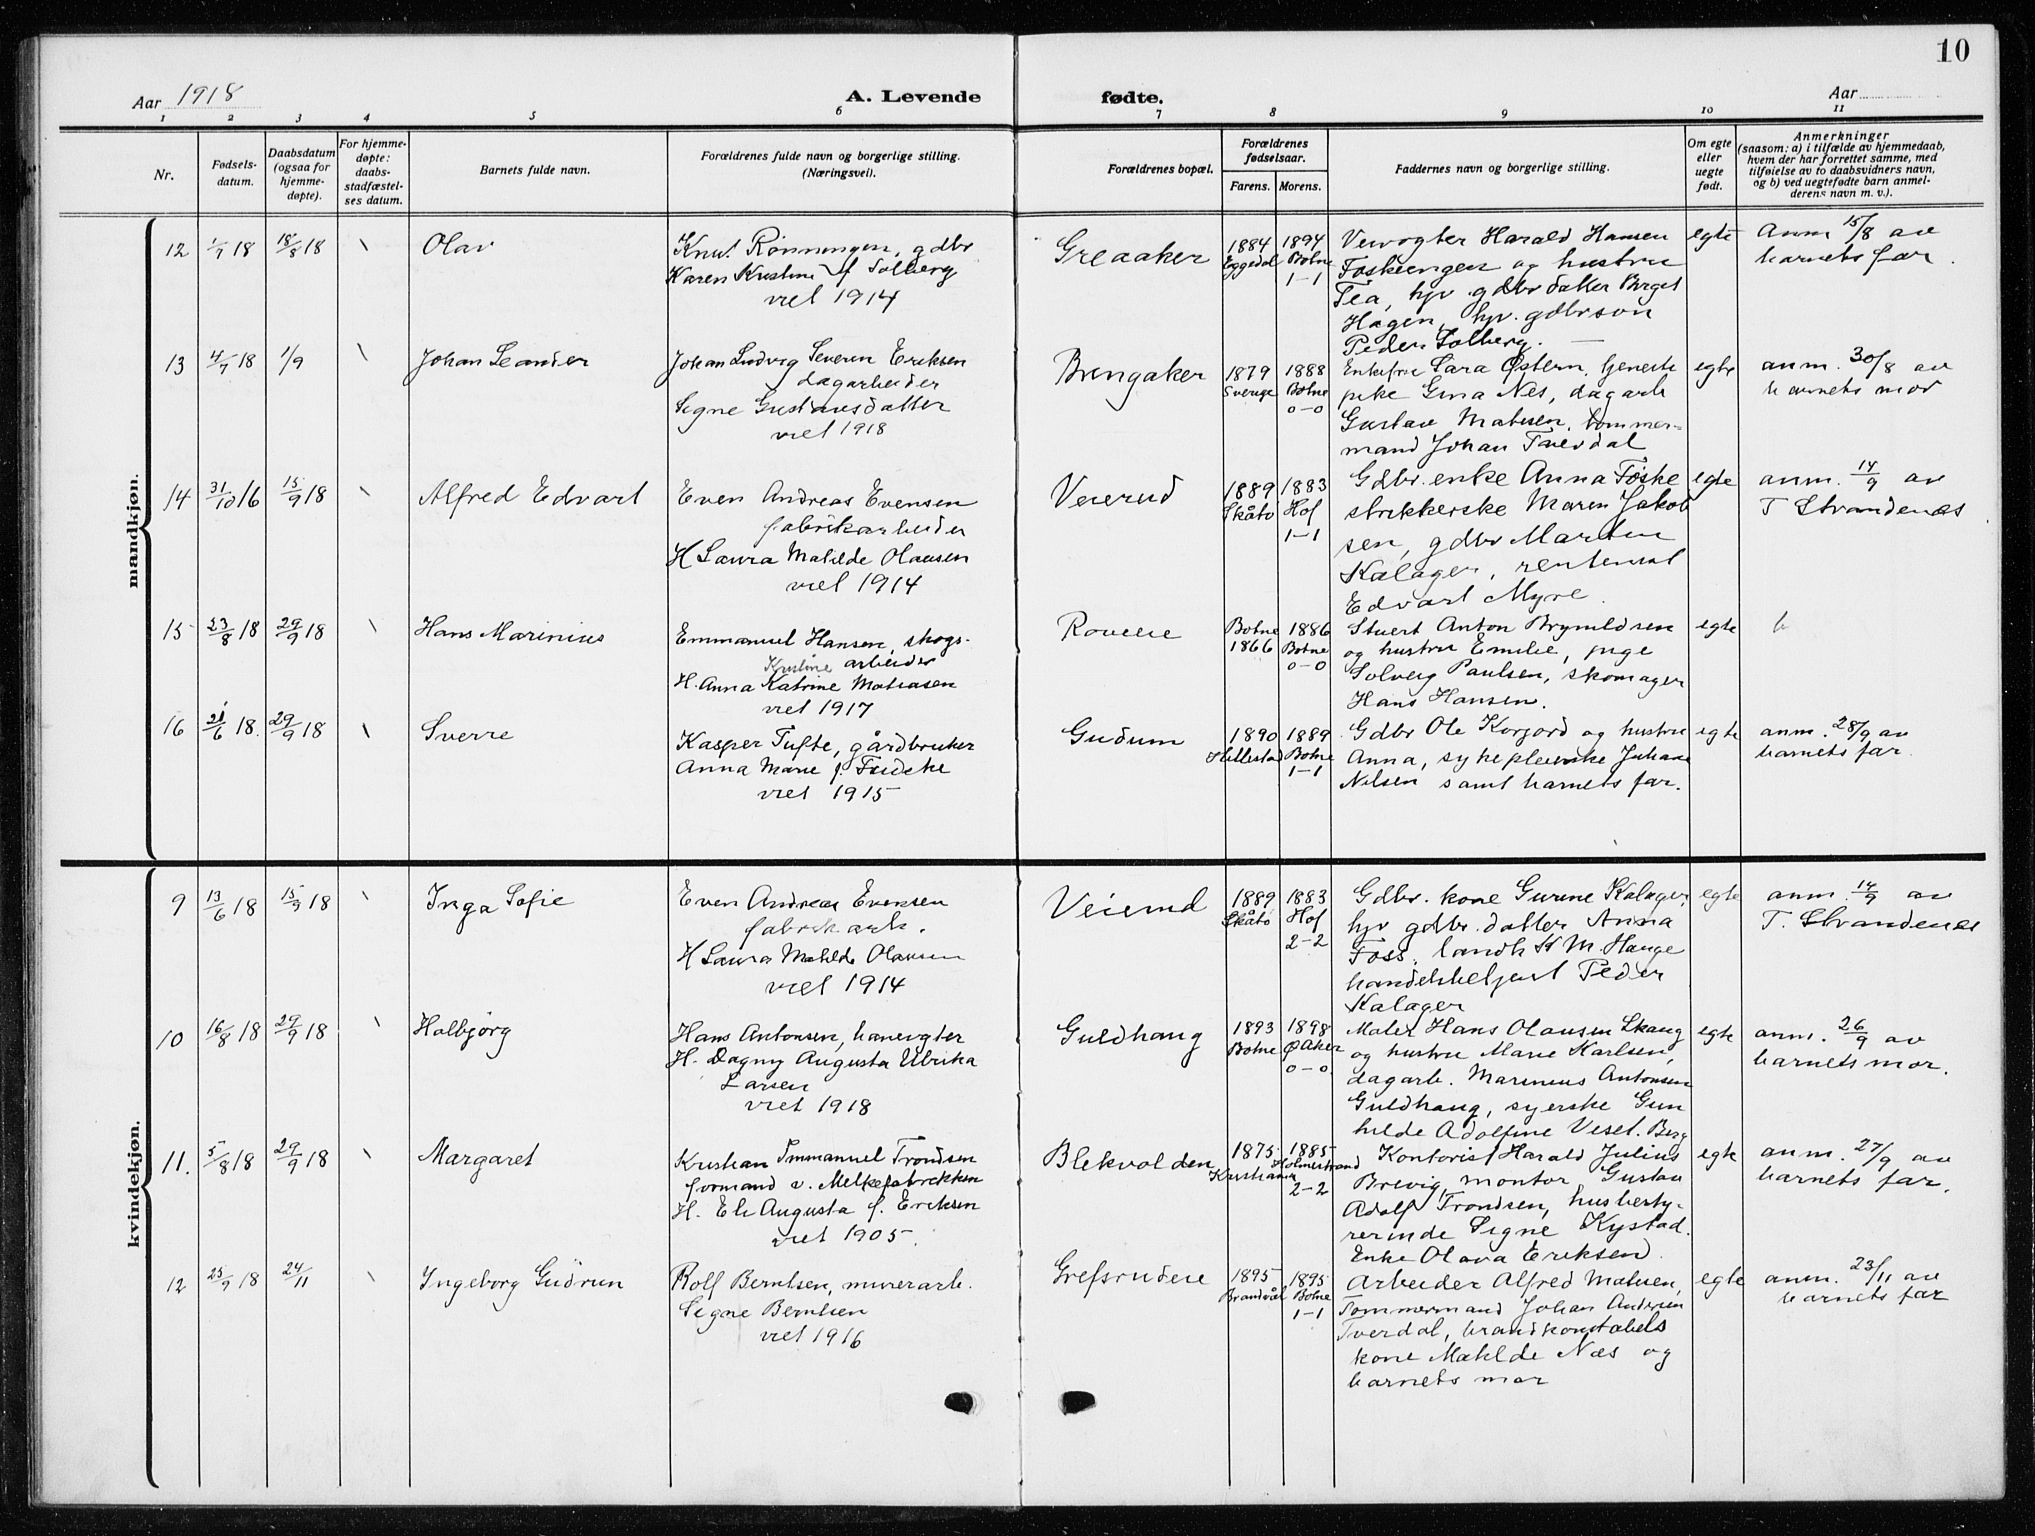 10
Aar 1918
A. Levende fødte.
Aar
1 2 3 4 5 6 7 8 9 10 11
Nr.
Fødsels-
datum.
Daabsdatum
(ogsaa for
hjemme-
døpte).
For hjemme-
døpte:
daabs-
stadfæstel-
ses datum.
Barnets fulde navn.
Forældrenes fulde navn og borgerlige stilling.
(Næringsvei).
Forældrenes bopæl.
Forældrenes
fødselsaar.
Farens. Morens.
Faddernes navn og borgerlige stilling.
Om egte
eller
uegte
født.
Anmerkninger
(saasom: a) i tilfælde av hjemmedaab,
hvem der har forrettet samme, med
tilføielse av to daabsvidners navn,
og b) ved uegtefødte barn anmel-
derens navn m. v.).
mandkjøn.
12 1/7 18 18/8 18 \ Olav
Knut Rønningen, gdbr
Karen Kristine f Solberg
viet 1914
Greaaker
1884 Eggedal
1894 Botne
1–1
Veivogter Harald Hansen
Foskeengen og hustru
Tea, hjv gdbr datter Borget
Hagen, hjv. gdbrsøn
Peder Solberg.
egte
Anm 15/8 av
barnets far.
13 4/7 18 1/9 \ Johan Leander
Johan Ludvig Severin Eriksen
dagarbeider
Signe Gustavsdatter
viet 1918
Brengaker
1879 Sverige
1888 Botne
0–0
Enkefru Sara Østern, tjeneste
pike Gina Nes, dagarb
Gustav Matisen, tømmer-
mand Johan Tverdal
egte
anm. 30/8 av
barnets mor
14 31/10 16 15/9 18 \ Alfred Edvart
Even Andreas Evensen
fabrikarbeider
H Laura Matilde Olausen
viet 1914
Veierud
1889 Skåtø
1883 Hof
1–1
Gdbr. enke Anna Foske
strikkerske Maren Jakob
sen, gdbr Martin
Kalager, rentenist
Edvart Myre.
egte
anm. 14/9 av
T Strandenæs
15 23/8 18 29/9 18 \ Hans Marinius
Emmanuel Hansen, skogs-
arbeider
Kristine
H. Anna Katrine Matiasen
viet 1917
Roveie
Botne 1866
1886 Botne
0–0
Stuert Anton Brynildsen
og hustru Emilie, pige
Solveig Paulsen, skomager
Hans Hansen.
egte
16 21/6 18. 29/9 18 \ Sverre
Kasper Tufte, gårdbruker
Anna Marie f.
viet 1915
Gudum
1890 Hillestad
1889 Botne
1–1
Gdbr Ole Korjord og hustru
Anna, sykepleierske Johane
Nilsen samt barnets far.
egte
anm. 28/9 av
barnets far.
kvindekjøn.
9 13/6 18 15/9 18 \ Inga Sofie
Even Andreas Evensen
fabrikarb.
H Laura Matilde Olausen
viet 1914
Veierud
1889 Skåtø
1883 Hof
2–2
Gdbr. kone Gurine Kalager
hjv gdbr. datter Anna
Foss, landh K M. Hauge
handelsbetjent Peder
Kalager
egte
anm. 14/9 av
T. Strandenæs
10 16/8 18 29/9 18 \ Halbjørg
Hans Antonsen, banevogter
H. Dagny Augusta Ulrika
Larsen
viet 1918
Guldhaug
1893 Botne
1898 Ø Aker
0–0
Maler Hans Olausen Skaug
og hustru Marie Karlsen,
dagarb. Marinius Antonsen
Guldhaug, syerske Gun
hilde Adolfine Veset. Berg
egte
anm. 26/9 av
barnets mor.
11. 5/8 18 29/9 18 \ Margaret
Kristian Immanuel Trondsen
formand v. Melkefabrikken
H. Eli Augusta f. Eriksen
viet 1905.
Blekvolden
1875 Kristiania
1885 Holmestrand
2–2
Kontorist Harald Julius
Brevig, montør Gustav
Adolf Trondsen, husbesty-
rerinde Signe Kystad.
Enke Olava Eriksen.
egte
anm. 27/9 av
barnets far.
12 25/9 18 24/11 \ Ingeborg Gudrun
Rolf Berntsen, murerarb.
Signe Berntsen
viet 1916
Grefsrudeie
1895 Brandval
1895 Botne
1–1
Arbeider Alfred Matisen,
Tømmermand Johan Andersen
Tverdal, brandkonstabels
kone Matilde Næs og
barnets mor
egte
anm. 23/11 av
barnets far